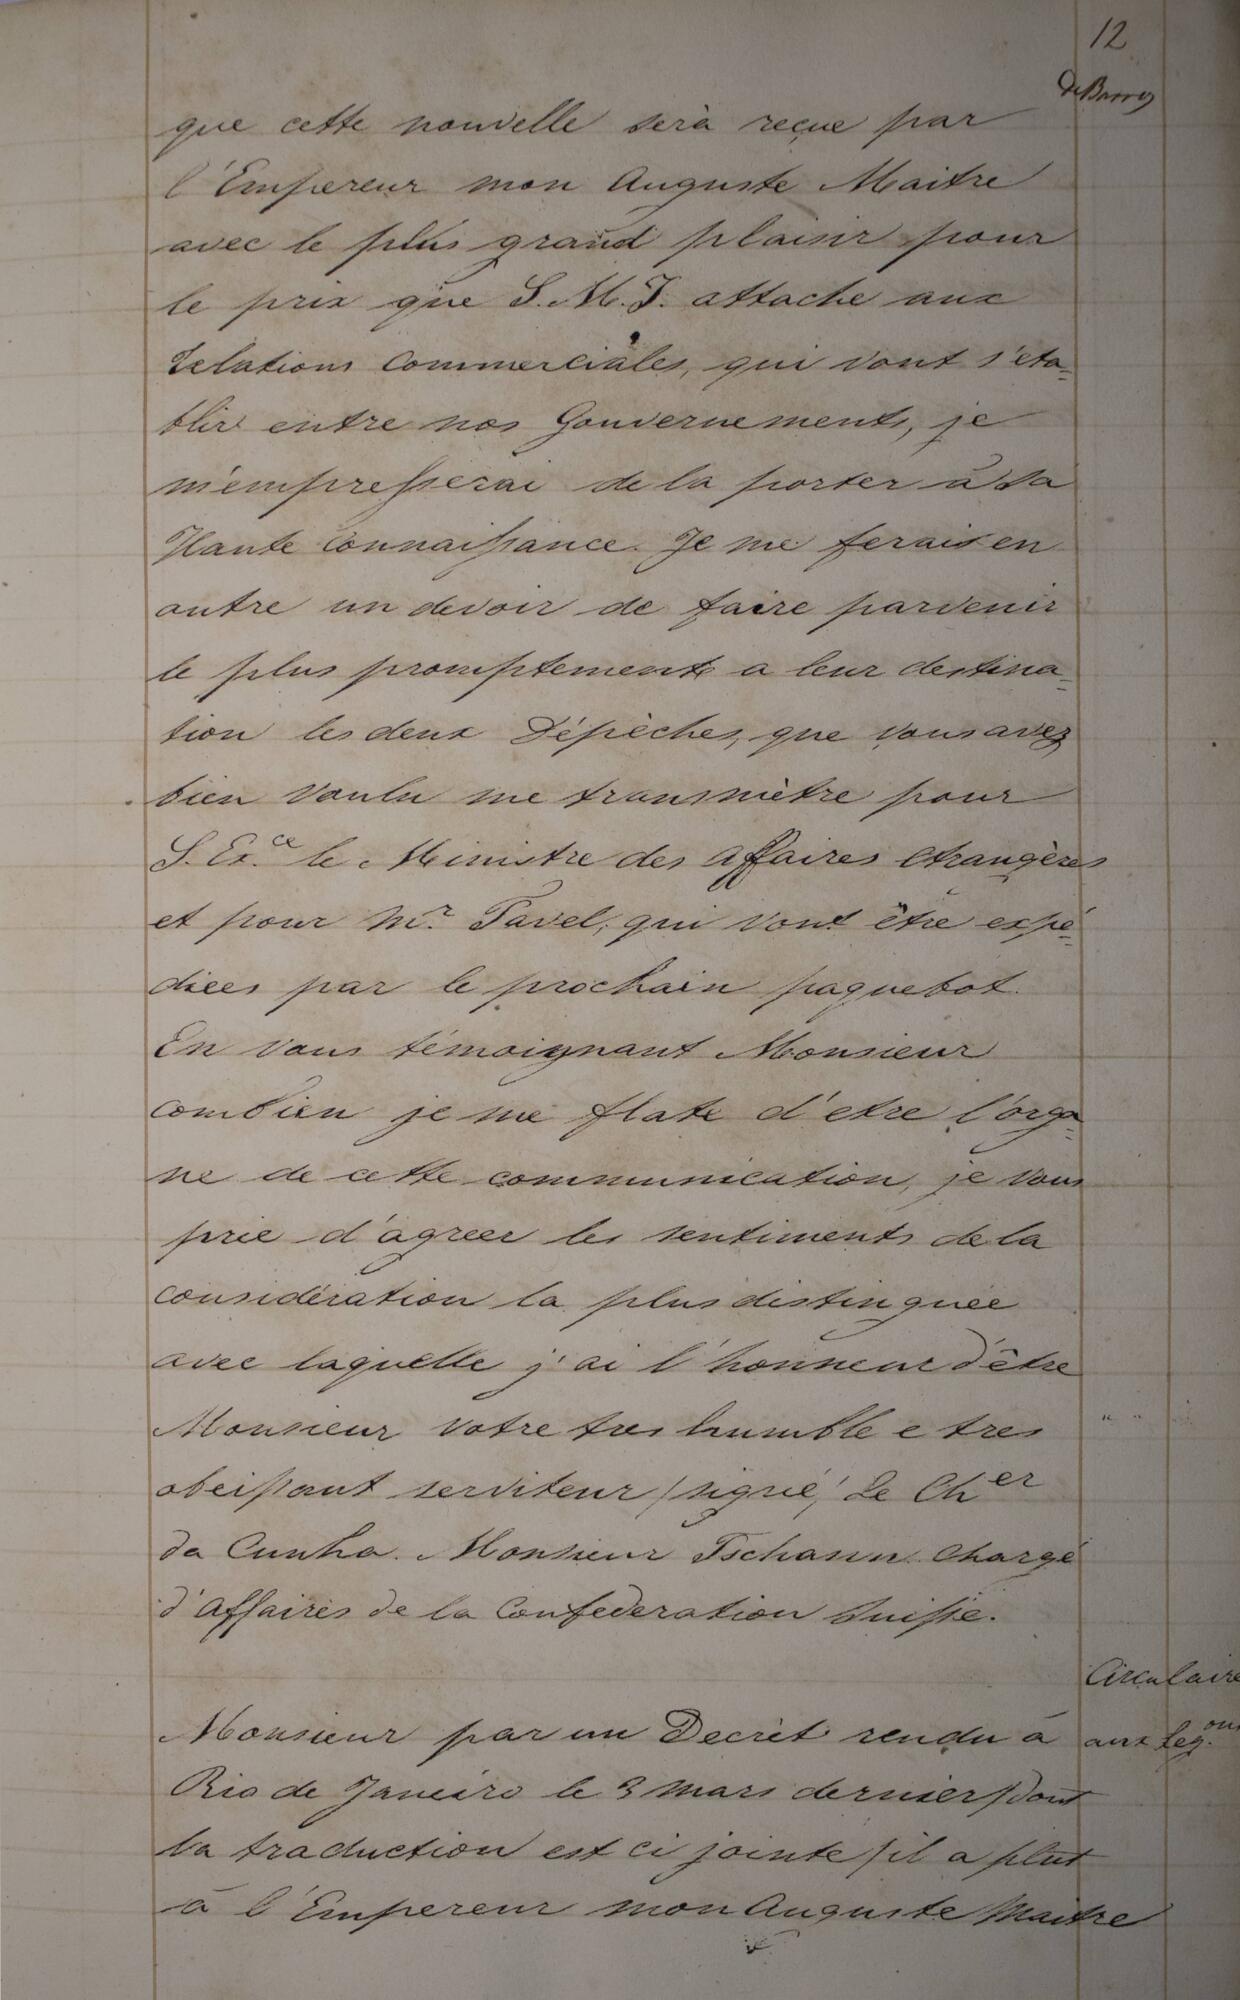 12
de Barros
que cette nouvelle serà reçue par
l'Empereur mon Auguste Maitre
avec le plus grand plaisir pour
le prix que S. M. J. attache aux
relations Commerciales, qui vont s'eta-
blir entre nos Gouvernements, je
m'empresserai de la porter à Sa
Haute Connaissance. Je me ferais en
outre un devoir de faire parvenir
le plus promptement a leur destina-
tion les deux Dépèches, que vous avez
bien voulu me transmètre pour
S. Ex.ce le Ministre des Affaires etrangères
et pour Mr. Tavel, qui vont être expé-
diees par le prochain paquebot.
En vous témoignant Monsieur
combien je me flate d'etre l'orga-
ne de cette communication, je vous
prie d'agreer les sentiments de la
considération la plus distinguée
avec laquelle j'ai l'honneur d'être
Monsieur votre tres humble e tres
obeissant serviteur /signé/ Le Cher
da Cunha. Monsieur Tschann Chargé
d'Affaires de la Confederation Suisse.
Circulaire
aux Leg.ons
Monsieur par un Decrèt rendu à
Rio de Janeiro le 3 mars dernier /dont
la traduction est ci jointe/ il a plut
à l'Empereur mon Auguste Maitre